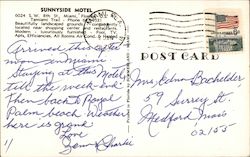 SUNNYSIDE MOTEL
S.W. 8th St., Miami,
Tamiami Trail Phone
Beautifully landscaped grounds conveniently
located near shopping center and restaurants.
Modern luxuriously furnished Pool, TV
Apts, Efficiencies, All Rooms Air Cond. & Heated
POST CARD
Arrived this after
noon in Miami
Staying at this Motel
till the week-end
Then back to Royal
Palm beach Weather
here is grand
Love
Charlie
Mrs Edna Bachelder
59 Surrey St.
Medford Mass
02155